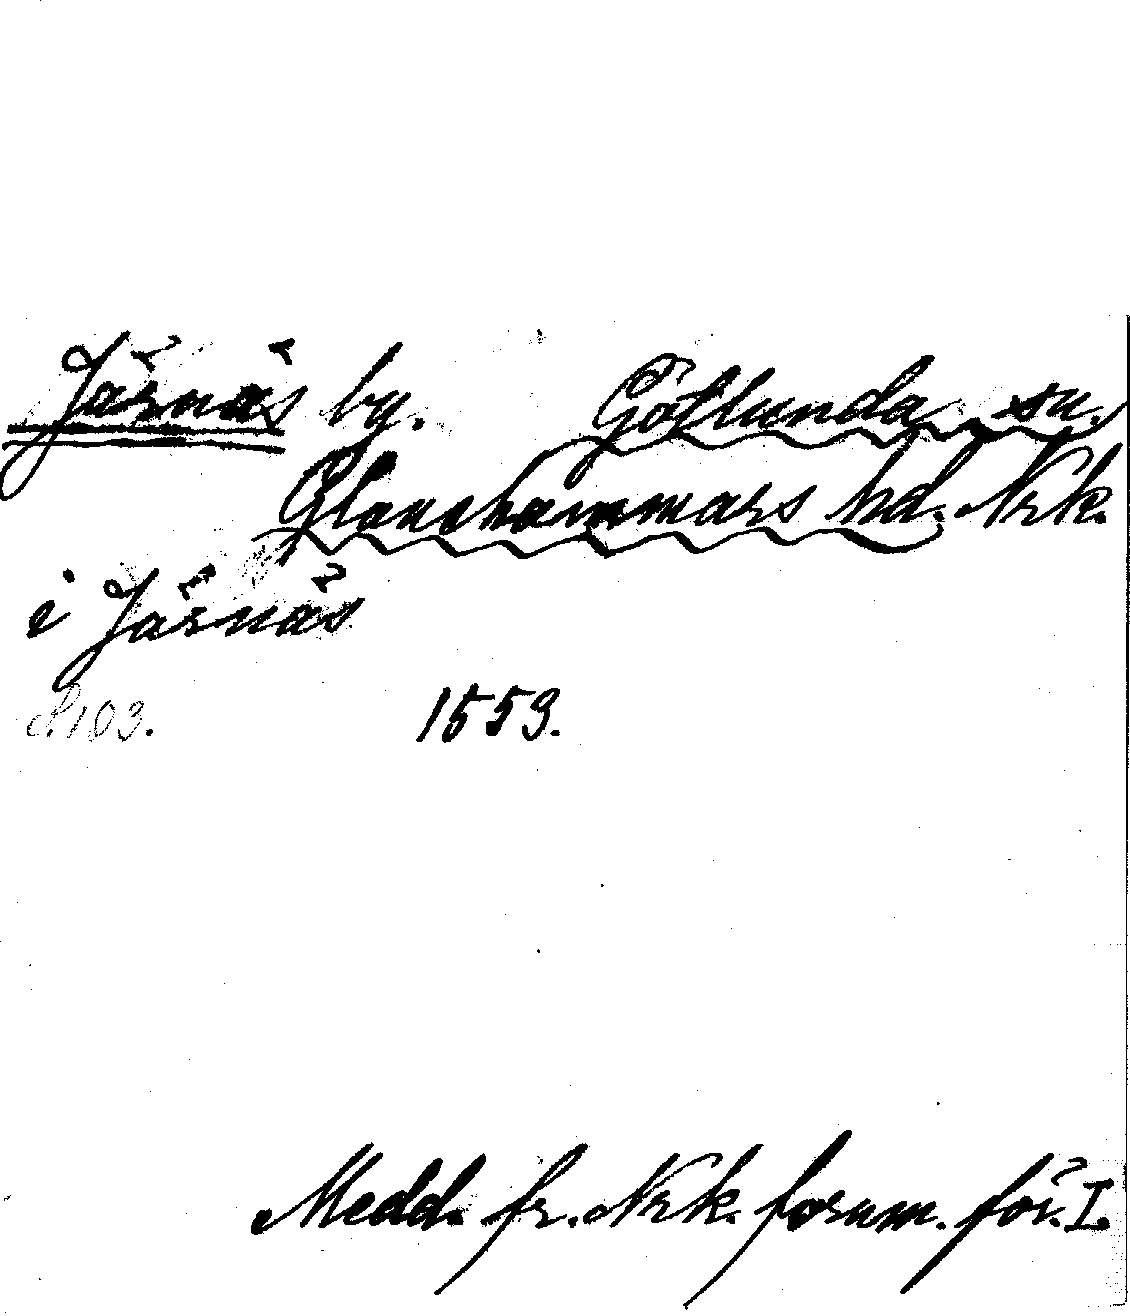 Järnäs by. Götlunda sn.
Glanshammars hd. Nrk.
i Järnäs
S. 103. 1553.
Medd. fr. Nrk. fornm. för. I.